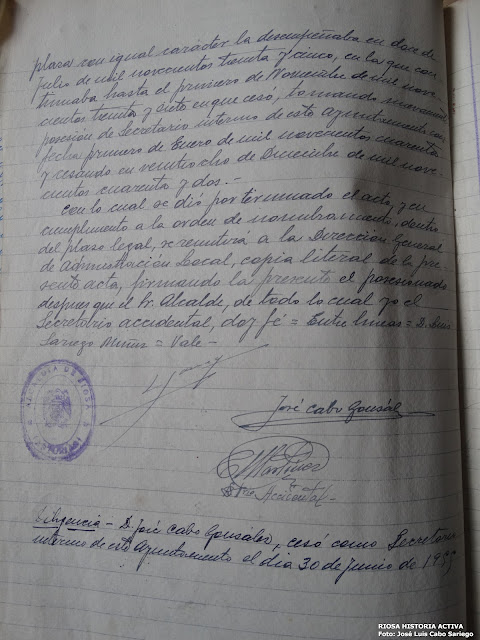 plaza con igual carácter la desempeñaba en doce de
Julio de mil novecientos treinta y cinco, en la que con-
tinuaba hasta el primero de Noviembre de mil nove-
cientos treinta y siete en que cesó, tomando nuevamente
posesión de Secretario interino de este Ayuntamiento con
fecha primero de Enero de mil novecientos cuarenta
y cesando en veintiocho de Diciembre de mil nove-
cientos cuarenta y dos.-
Con lo cual se dió por terminado el acto, y en
cumplimiento a la orden de nombramiento, dentro
del plazo legal, se remitirá a la Dirección General
de Administración Local, copia literal de la pre-
sente acta, firmando la presente el posesionado
despues que el Sr. Alcalde, de todo lo cual yo el
Secretario accidental, doy fé = Entre lineas = D. Luis
Sariego Muñiz = Vale -
ALCALDIA DE RIOSA
José Cabo Gonzál
Martinez
Srio Accidental-
Diligencia - D. José Cabo González, cesó como Secretario
interino de este Ayuntamiento el dia 30 de Junio de
RIOSA HISTORIA ACTIVA
Foto: José Luis Cabo Sariego